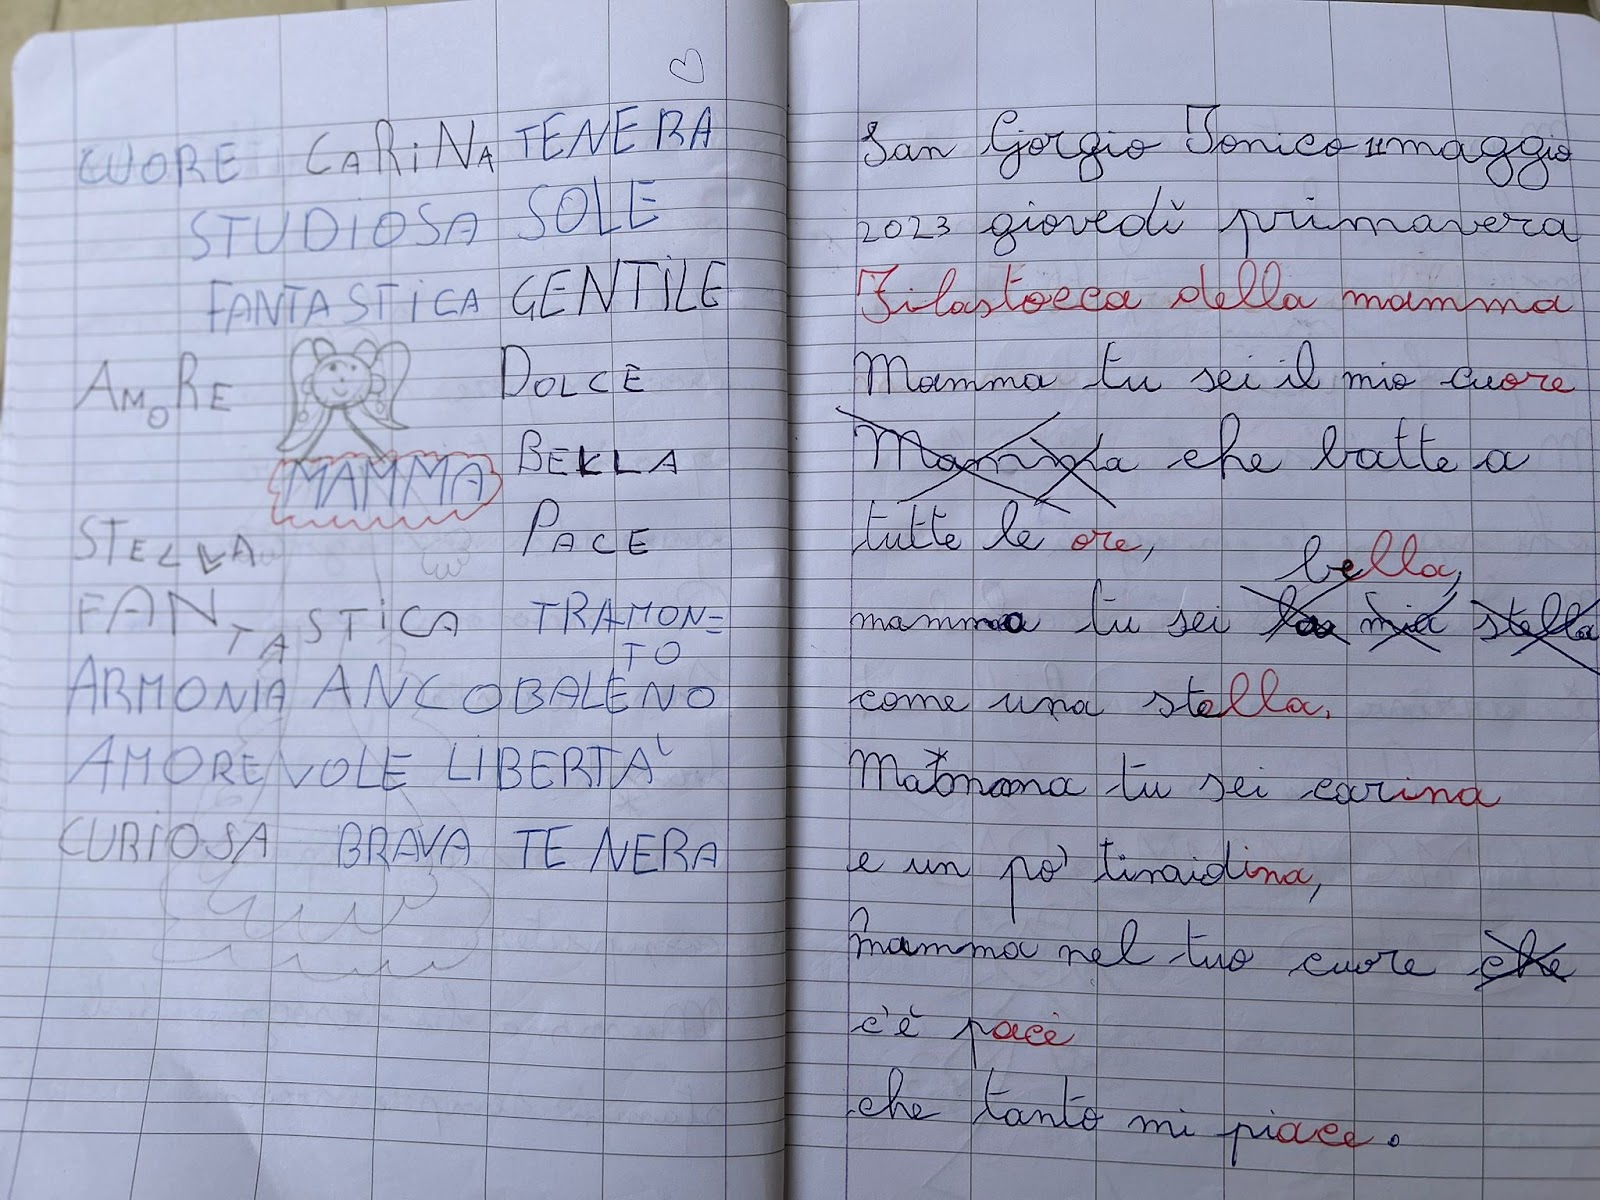 CUORE CARINA TENERA
STUDIOSA SOLE
FANTASTICA GENTILE
AMORE DOLCE
MAMMA BELLA
STELLA PACE
FANTASTICA TRAMON=
TO
ARMONIA ANCOBALENO
AMOREVOLE LIBERTA'
CURIOSA BRAVA TENERA
San Giorgio Jonico 11 maggio
2023 giovedì primavera
Filastrocca della mamma
Mamma tu sei il mio cuore
Mamma che batte a
tutte le ore,
bella,
mamma tu sei la mia stella
come una stella.
Mamma tu sei carina
e un pò timidina,
mamma nel tuo cuore che
c'è pace
che tanto mi piace.